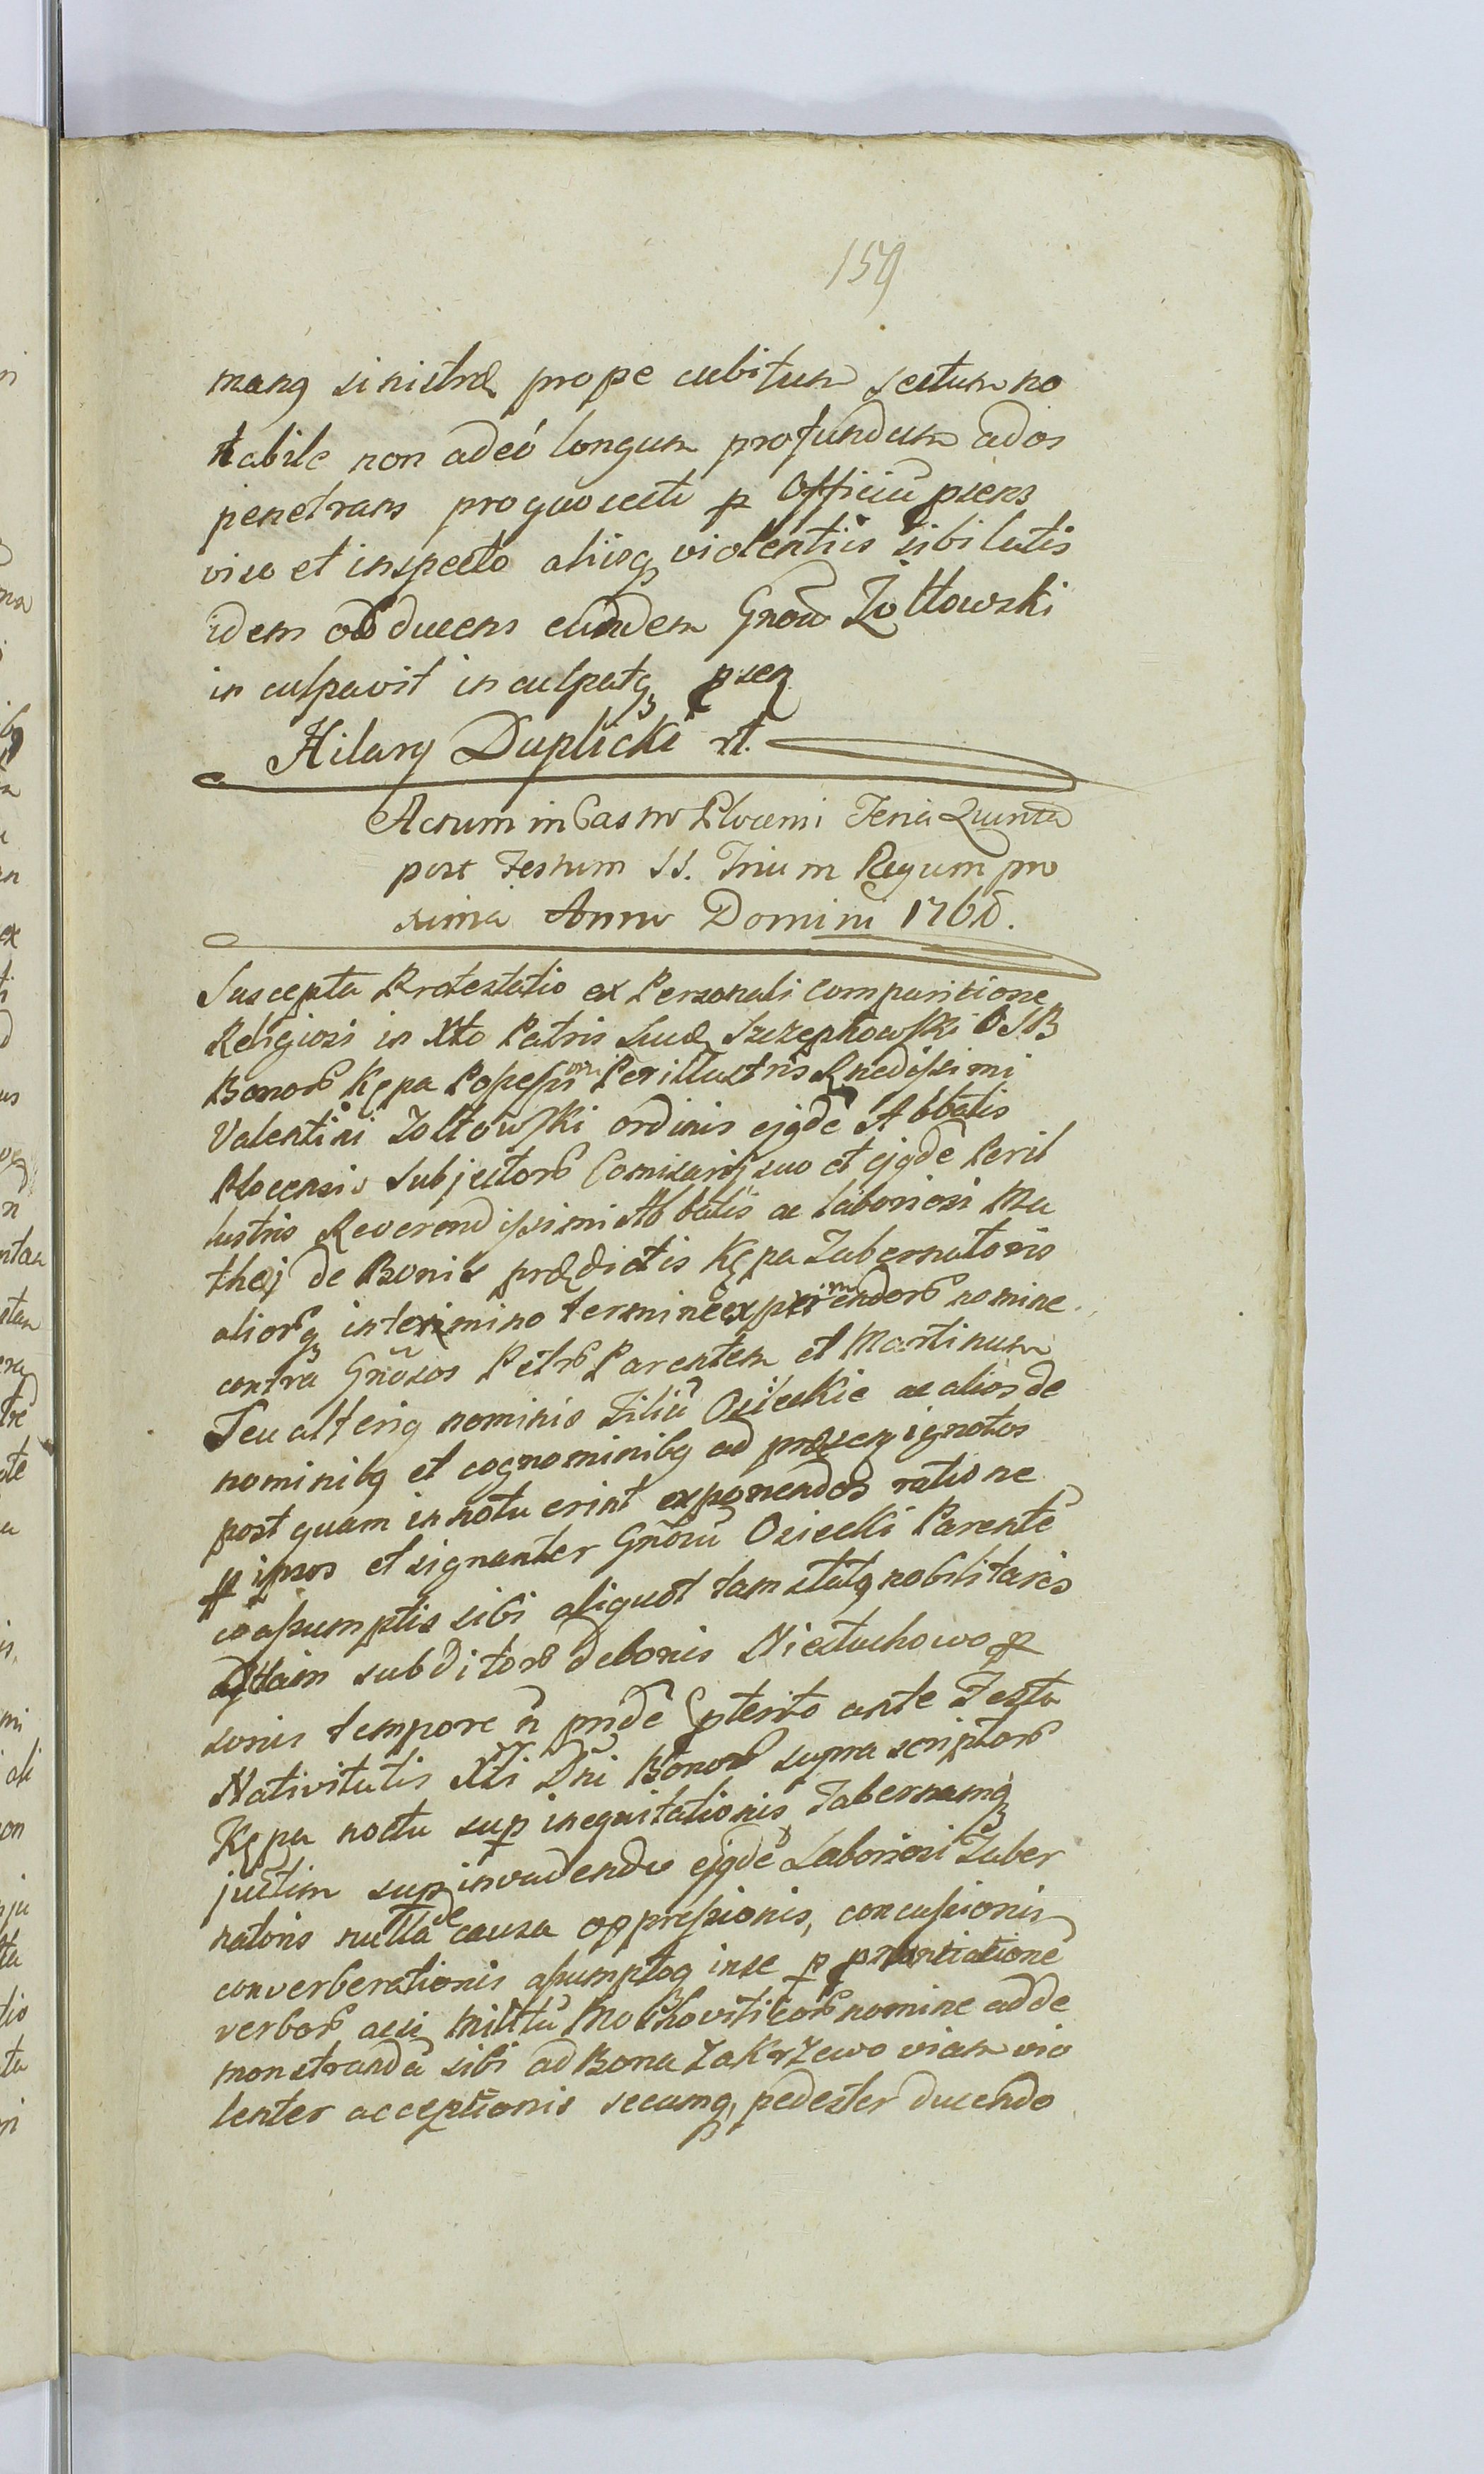 159
manꝯ sinistræ prope cubitum sectum no
tabile non adeó longum profundum ad os
penetrans pro quo secti ꝑ Officiũ psens
viso et inspecto aliisqꝫ violentiis sibi latis
idem obducens eundem Gnõsũ Żołtowski
in culpavit inculpatqꝫ psenꝫ
Hilary Duplicki rt.
Actum in Castro Plocensi Feria Quinta
post Festum SS. Trium Regum pro
xima Anno Domini 1768.
Suscepta Protestatio ex Personali Comparitione
Religiosi in Xto Patris Lucæ Szczepkowski OSB
Bonorũ Kępa Possessoris Perillustris Rnedissimi
Valentini Zołtowski ordinis ejꝯdẽ Abbatis
Plocensis Subjectorũ Comisarij suo et ejꝯdẽ Peril
lustris Reverendissimi Abbatis ac laboriosi Ma
thæi de Bonis prædictis Kępa Tabernatoris
aliorũqꝫ in termino termine exprimendorũ nomine
contra Gnõsos Petrũ Parentem et Martinum
Seu alteriꝯ nominis Filiũ Osieckie ac alios de
nominibꝯ et cognominibꝯ ad præsenꝫ ignotos
post quam innotuerint exponendos ratione
ꝑ ipsos et signanter Gnõsũ Osiecki Parentẽ
coassumptis sibi aliquot tam statꝯ nobilitaris
qꝫ tam subditorũ de bonis Niestuchowo ꝑ
sonis tempore ñ pridẽ pterito ante Festa
Nativitatis Xti Dñi Bonorũ supra scriptorũ
Kępa noctu sup inequitationis Tabernamqꝫ
juctim sup invadendo ejꝯdẽ Laboriosi Taber
natoris nulla de causa oppressionis, concussionis
converberationis assumptoqꝫ in se ꝑ pnuntiationẽ
verborũ acsi militũ Moschoviticorũ nomine ad de
monstrandã sibi ad Bona Zakrzewo viam vio
lenter acceptionis secumqꝫ pedester ducendo